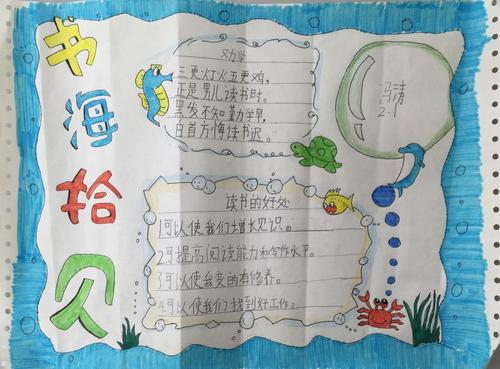 书海拾贝
劝学
三更灯火五更鸡，
正是男儿读书时。
黑发不知勤学早，
白首方悔读书迟。
2.1
读书的好处
1.可以使我们增长见识。
2.可提高阅读能力和写作水平。
3.可以使我变的有修养。
4.可以使我们找到好工作。